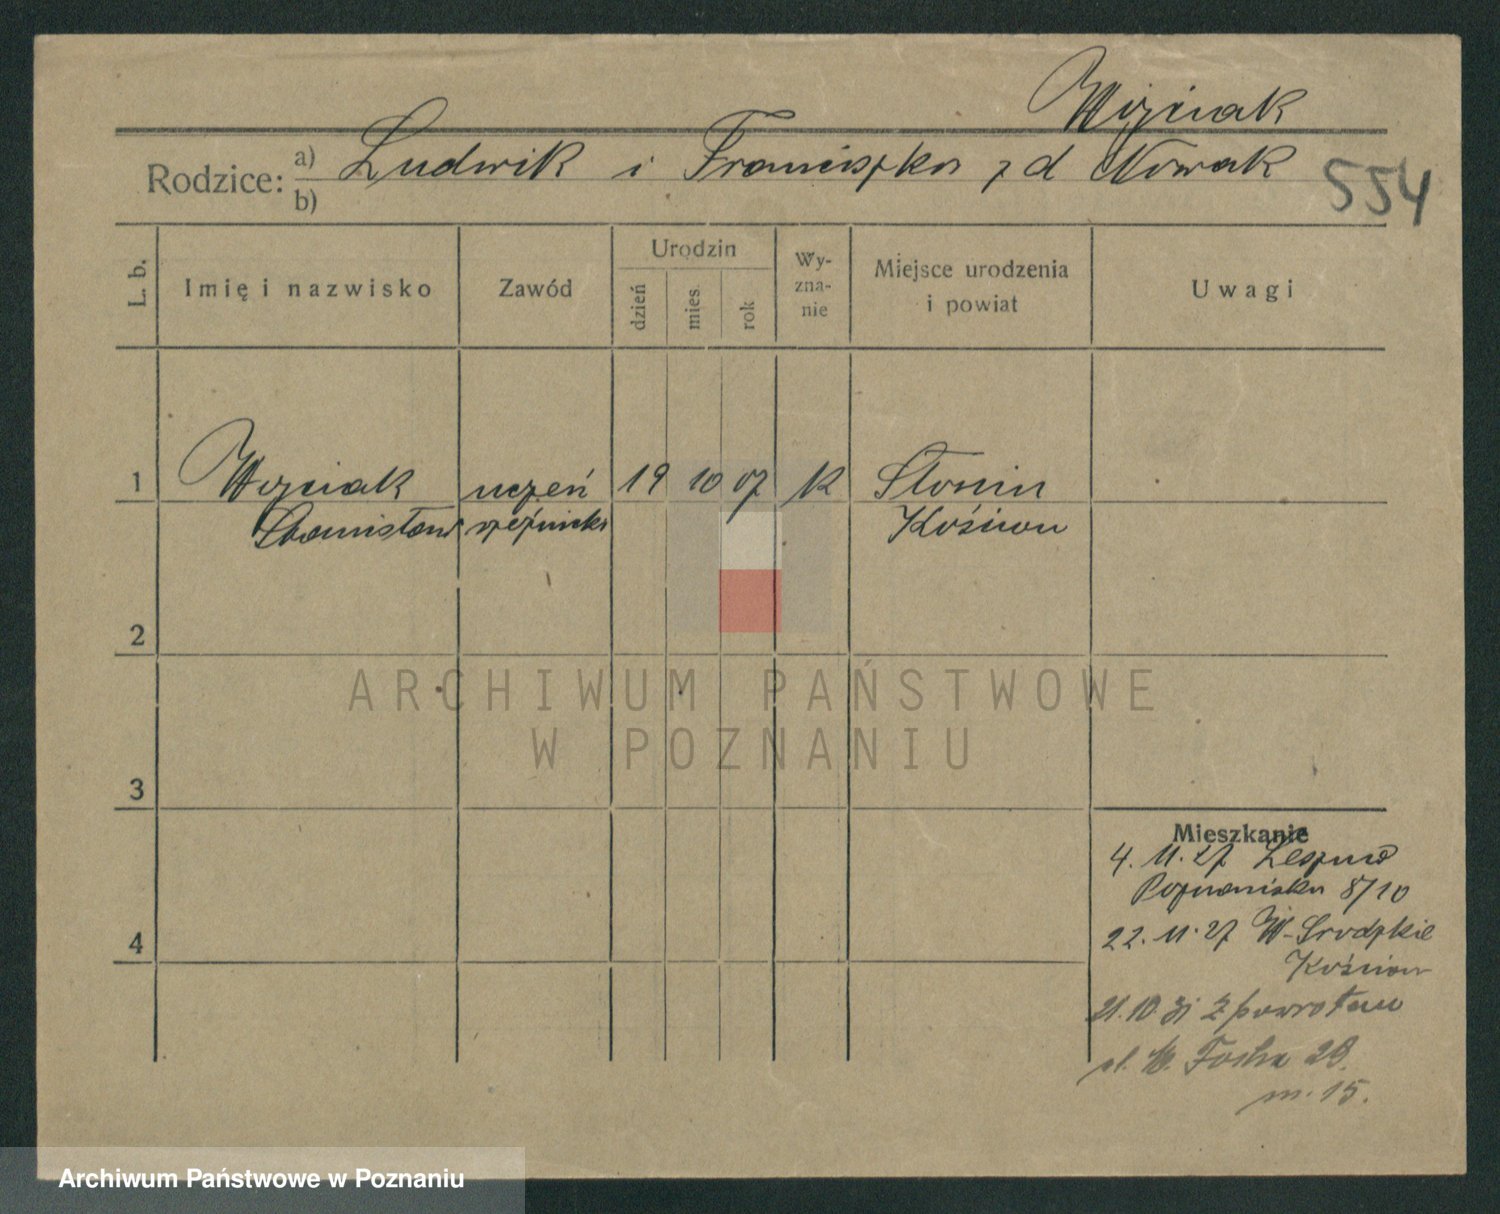 Wojciak
Rodzice: a) Ludwik i Franciszka z d Nowak
b)
554
L. b.
Imię i nazwisko
Zawód
Urodzin
dzień
mies.
rok
Wy-
zna-
nie
Miejsce urodzenia
i powiat
Uwagi
1 Wojciak uczeń 19 10 07 K Słonin
Stanisław rzeźnicki Kościan
2
3
4
Mieszkanie
4. 11. 27 Leszno
Poznańska 8/10
22. 11. 27 W-
Kościan
21. 10 31 z powrotem
ul. M. Focha 28.
m. 15.
ARCHIWUM PAŃSTWOWE
W POZNANIU
Archiwum Państwowe w Poznaniu